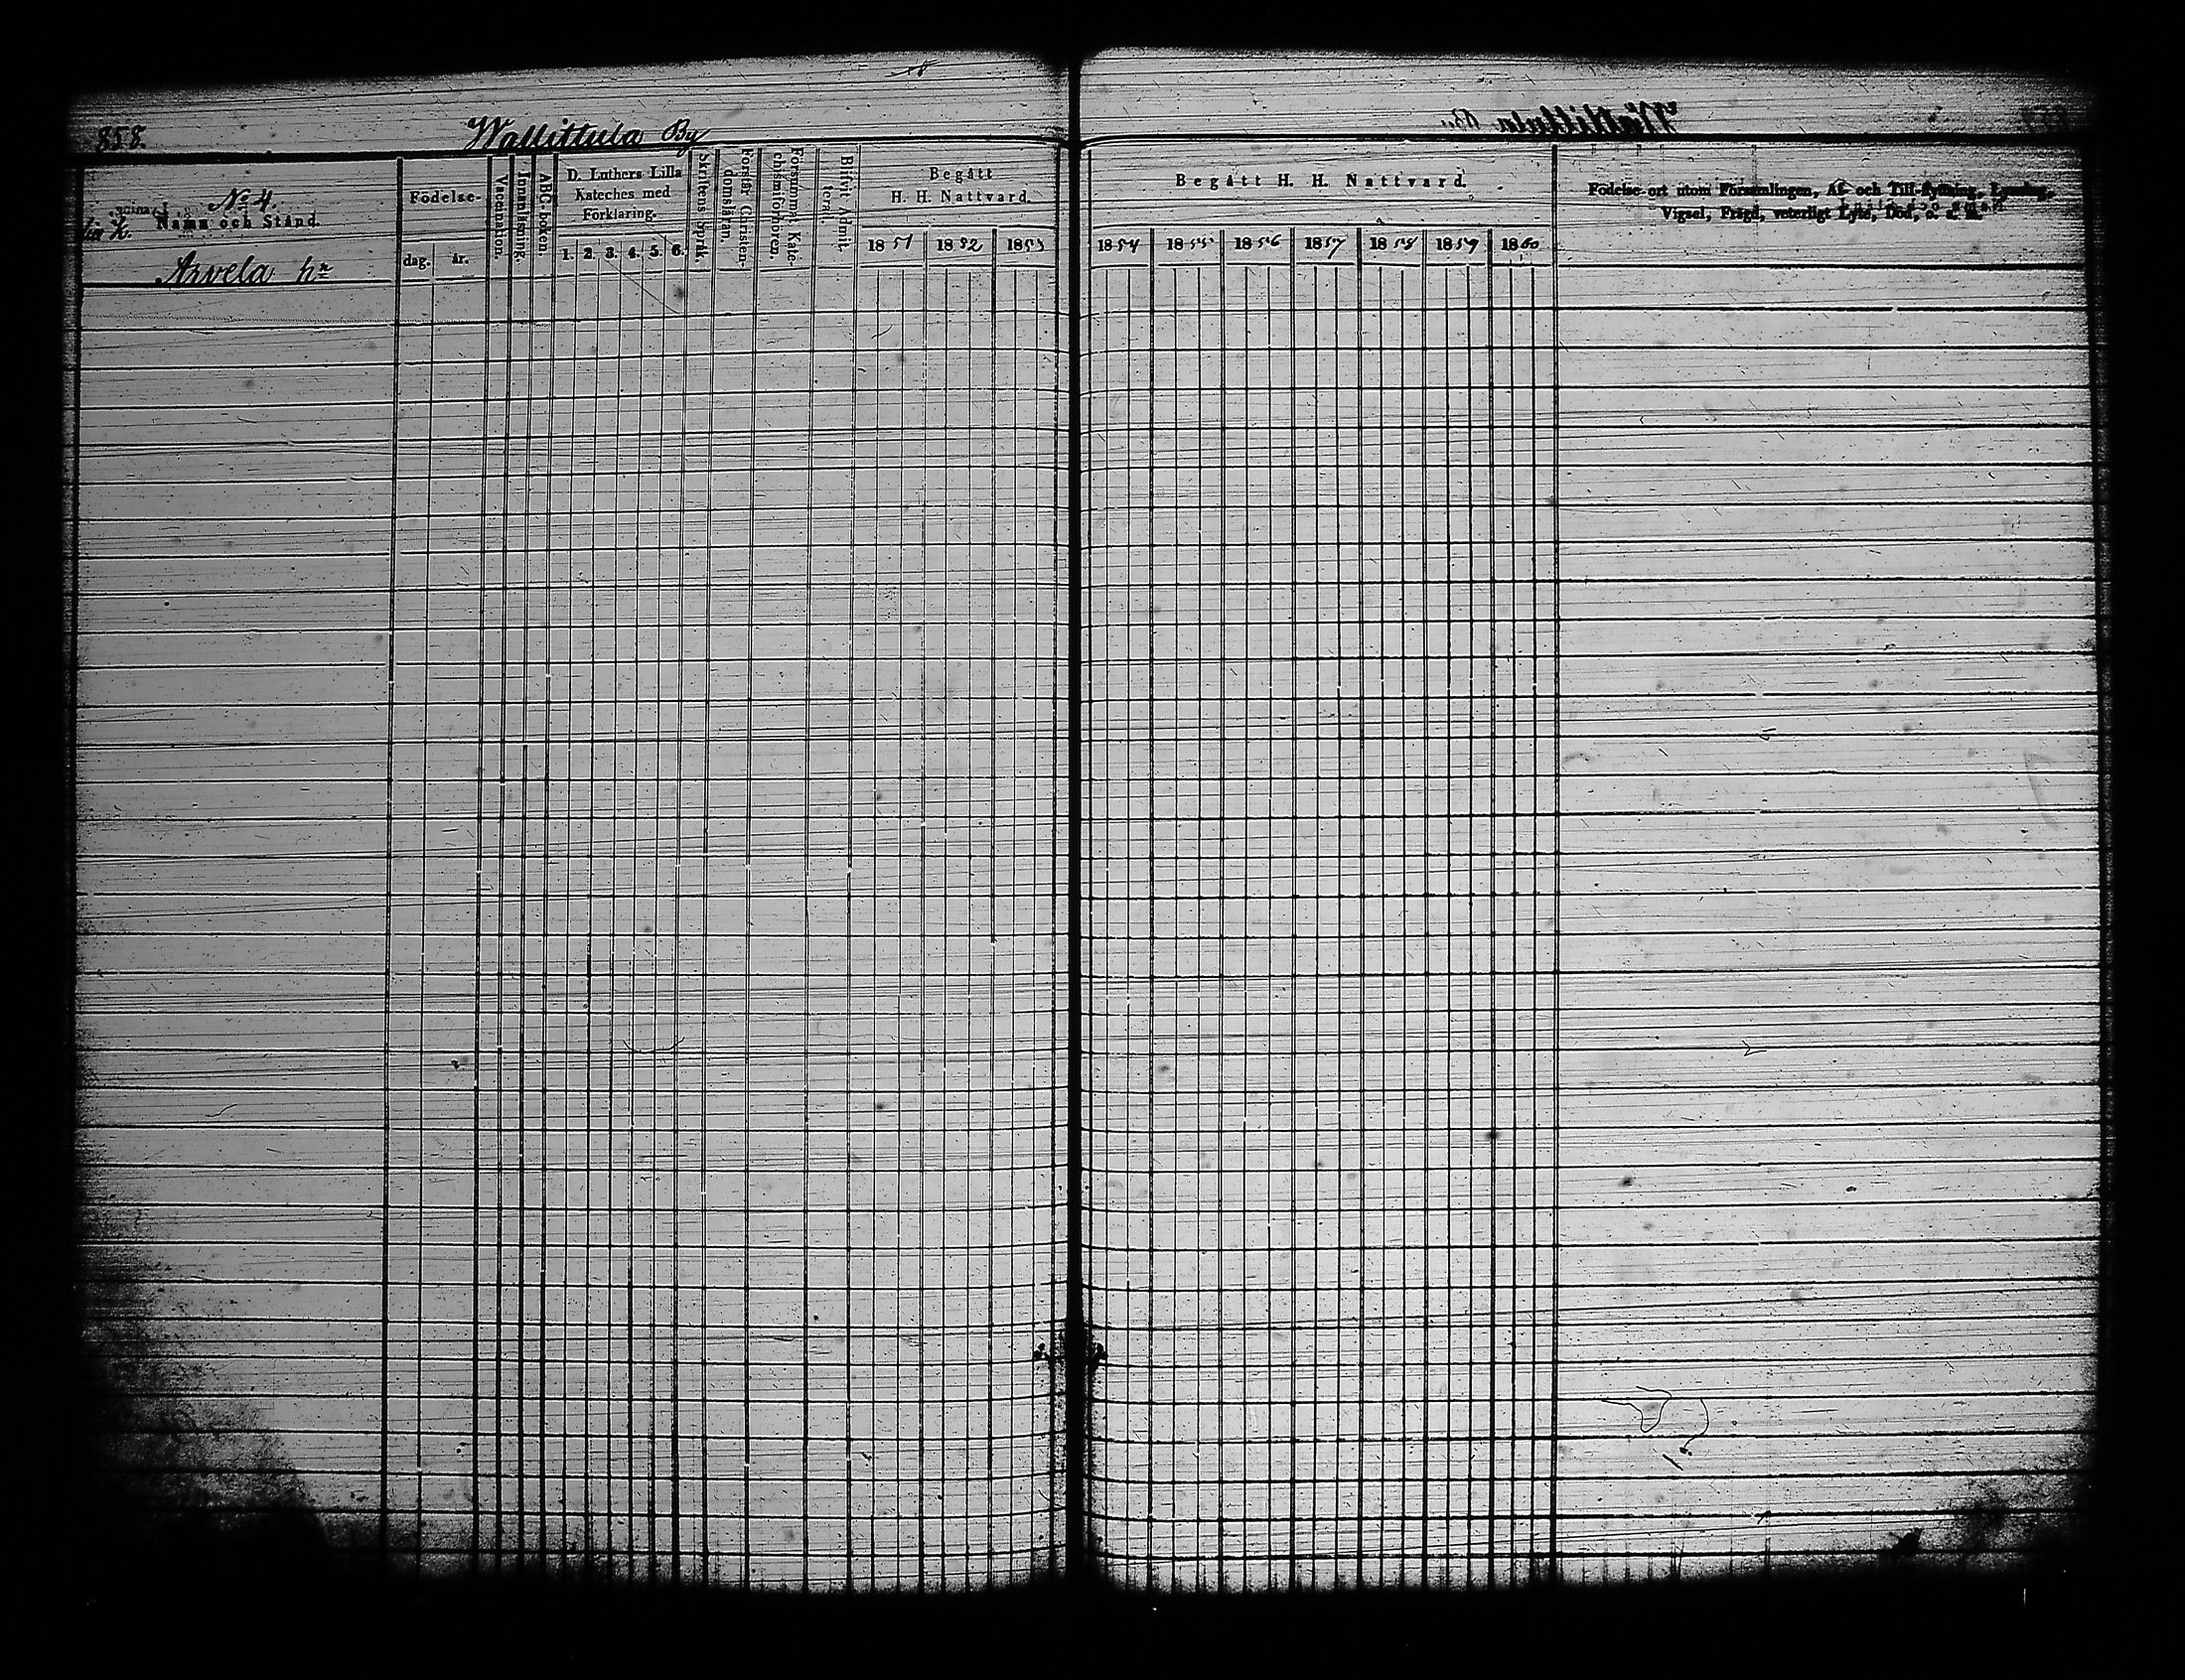 858.
Wallittula By
No 4.
Namn och Stånd.
Arvela hn
Födelse-
dag. år.
Vaccination.
Innanläsning.
ABC-boken.
D. Luthers Lilla
Kateches med
Förklaring.
1. 2. 3. 4. 5. 6.
Skriftens Språk.
Försvar Christen-
domslåran.
Försummat Kate-
chismiförhören.
Blifvit Admit-
terad.
Begått
H. H. Nattvard.
1851 1852 1853
Begått H. H. Nattvard.
1854 1855 1856 1857 1858 1859 1860
Födelse-ort utom Församlingen, Af- och Till-flyttning, Lysning,
Vigsel, Frägd, veterligt Lyte, Död, o. s. v.